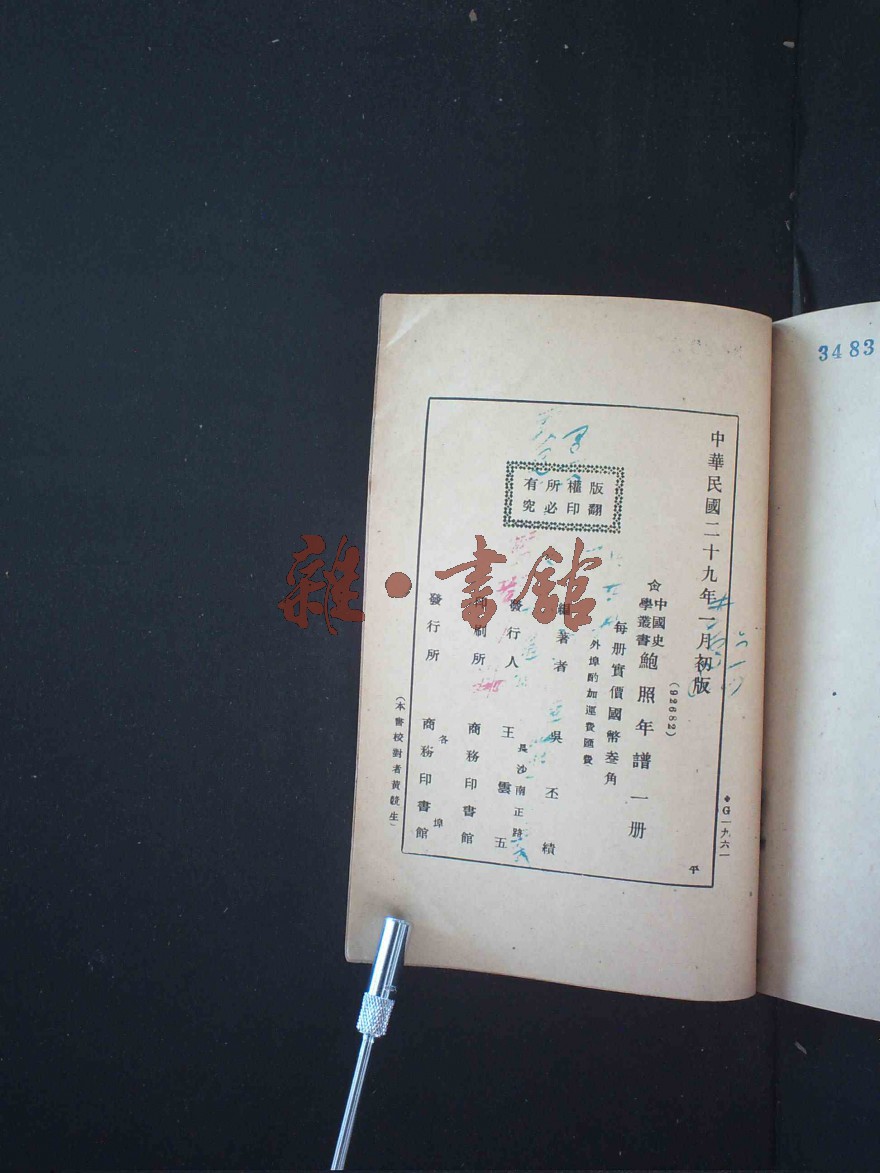 3483
中華民國二十九年一月初版
(92682)
中國史
學叢書 鮑照年譜 一册
每册實價國幣叁角
外埠酌加運費匯費
版權所有
翻印必究
編著者 吳丕績
發行人 王雲五
長沙南正路
印刷所 商務印書館
發行所 商務印書館
各埠
(本書校對者黃競生)
◆G一九六一
平
雜·書館